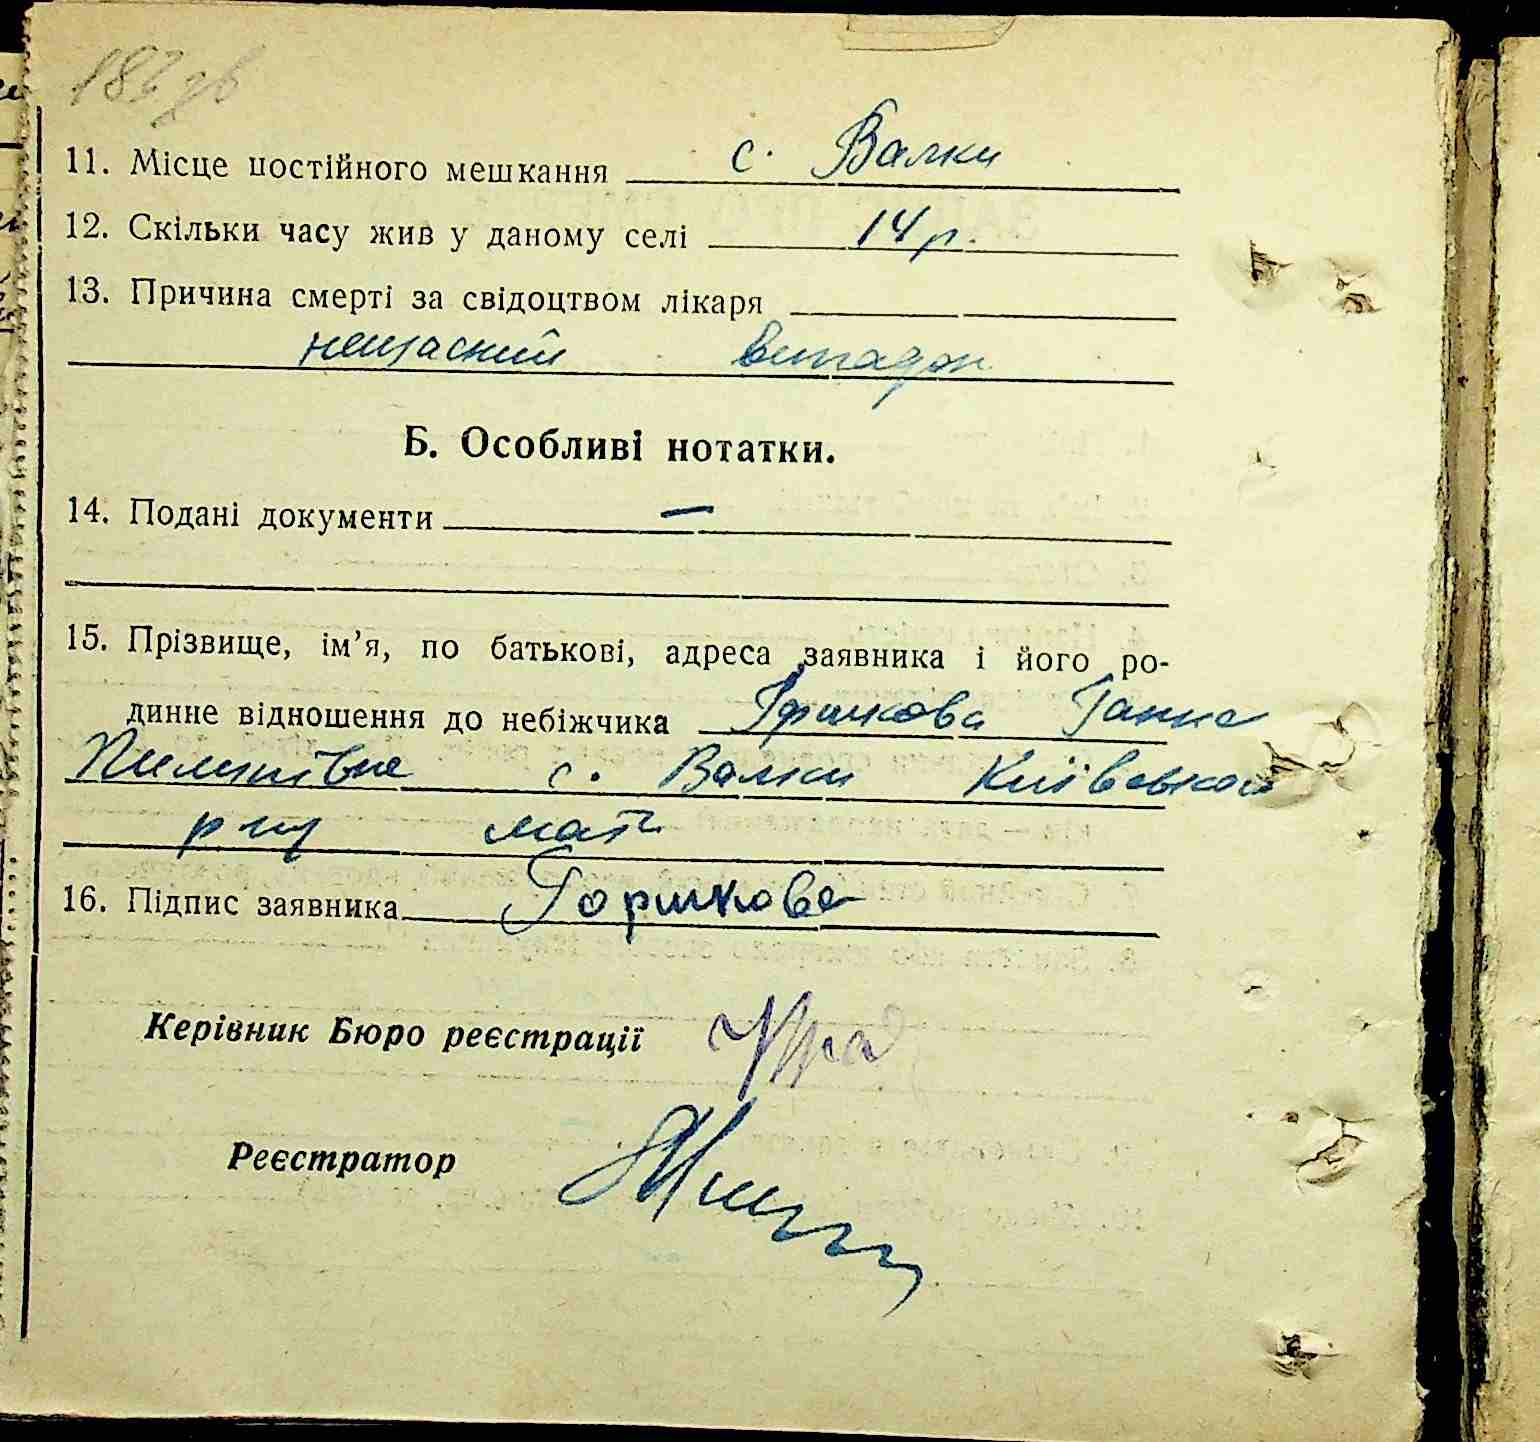 11. Місце постійного мешкання с. Валки
12. Скільки часу жив у даному селі 14 р.
13. Причина смерті за свідоцтвом лікаря
нещасний випадок
Б. Особливі нотатки.
14. Подані документи —
15. Прізвище, ім’я, по батькові, адреса заявника і його ро-
динне відношення до небіжчика Горшкова Ганна
Пилипівна с. Валки Київської
р-ну мати
16. Підпис заявника Горшкова
Керівник Бюро реєстрації
Реєстратор